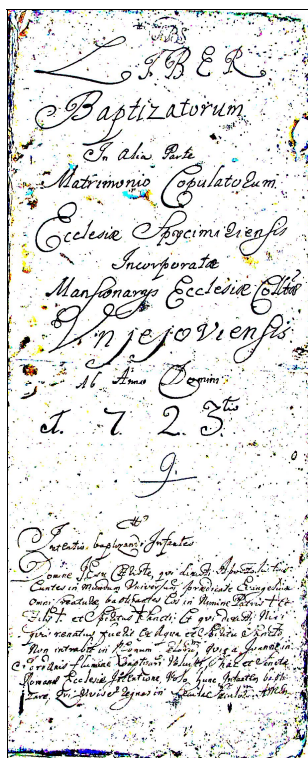 LIBER
Baptizatorum
In Alia Parte
Matrimonio Copulatorum
Ecclesiæ Spycimiriensis
Incorporatæ
Mansionarys Ecclesiæ
Vnjejoviensis
Ab Anno Domini
1. 7. 2. 3.tio
9.
Intentio baptizandi Infantes
Domine Jesu Christe, qui dixisti Apostolis tuis
Euntes in mundum Universum prædicate Evangelium
omni creaturæ baptizantes Eos in Nomine Patris + et
Filii + et Spiritus + Sancti; et qui dixisti Nisi
quis renatus fuerit ex Aqua et Spiritu Sancto
Non introibit in
flumine Baptizari
Romanæ Ecclesiæ Intentione, Volo hunc Infantem bapti
zare, Qui Vivis et regnas in Amen